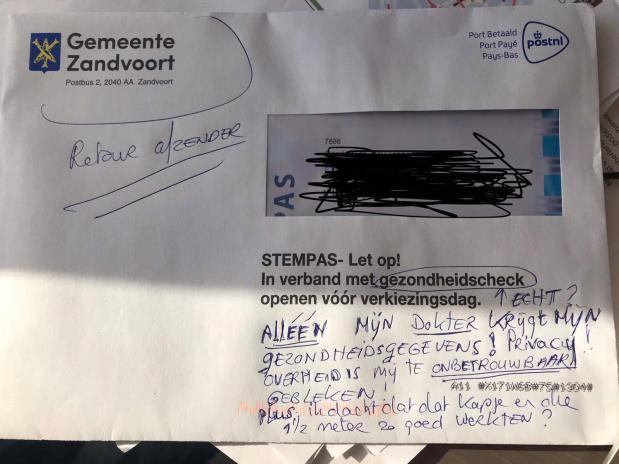 Gemeente
Zandvoort
Postbus 2, 2040 AA Zandvoort
Port Betaald
Port Payé
Pays-Bas
postnl
Retour afzender
7686
PAS
STEMPAS- Let op!
In verband met gezondheidscheck
openen vóór verkiezingsdag. ↑ ECHT?
ALLÉÉN MIJN DOKTER KRIJGT MIJN
GEZONDHEIDSGEGEVENS! PRIVACY!
OVERHEID IS MIJ TE ONBETROUWBAAR
GEBLEKEN!
Plus: ik dacht dat dat kapje en die
1 1/2 meter zo goed werkten?